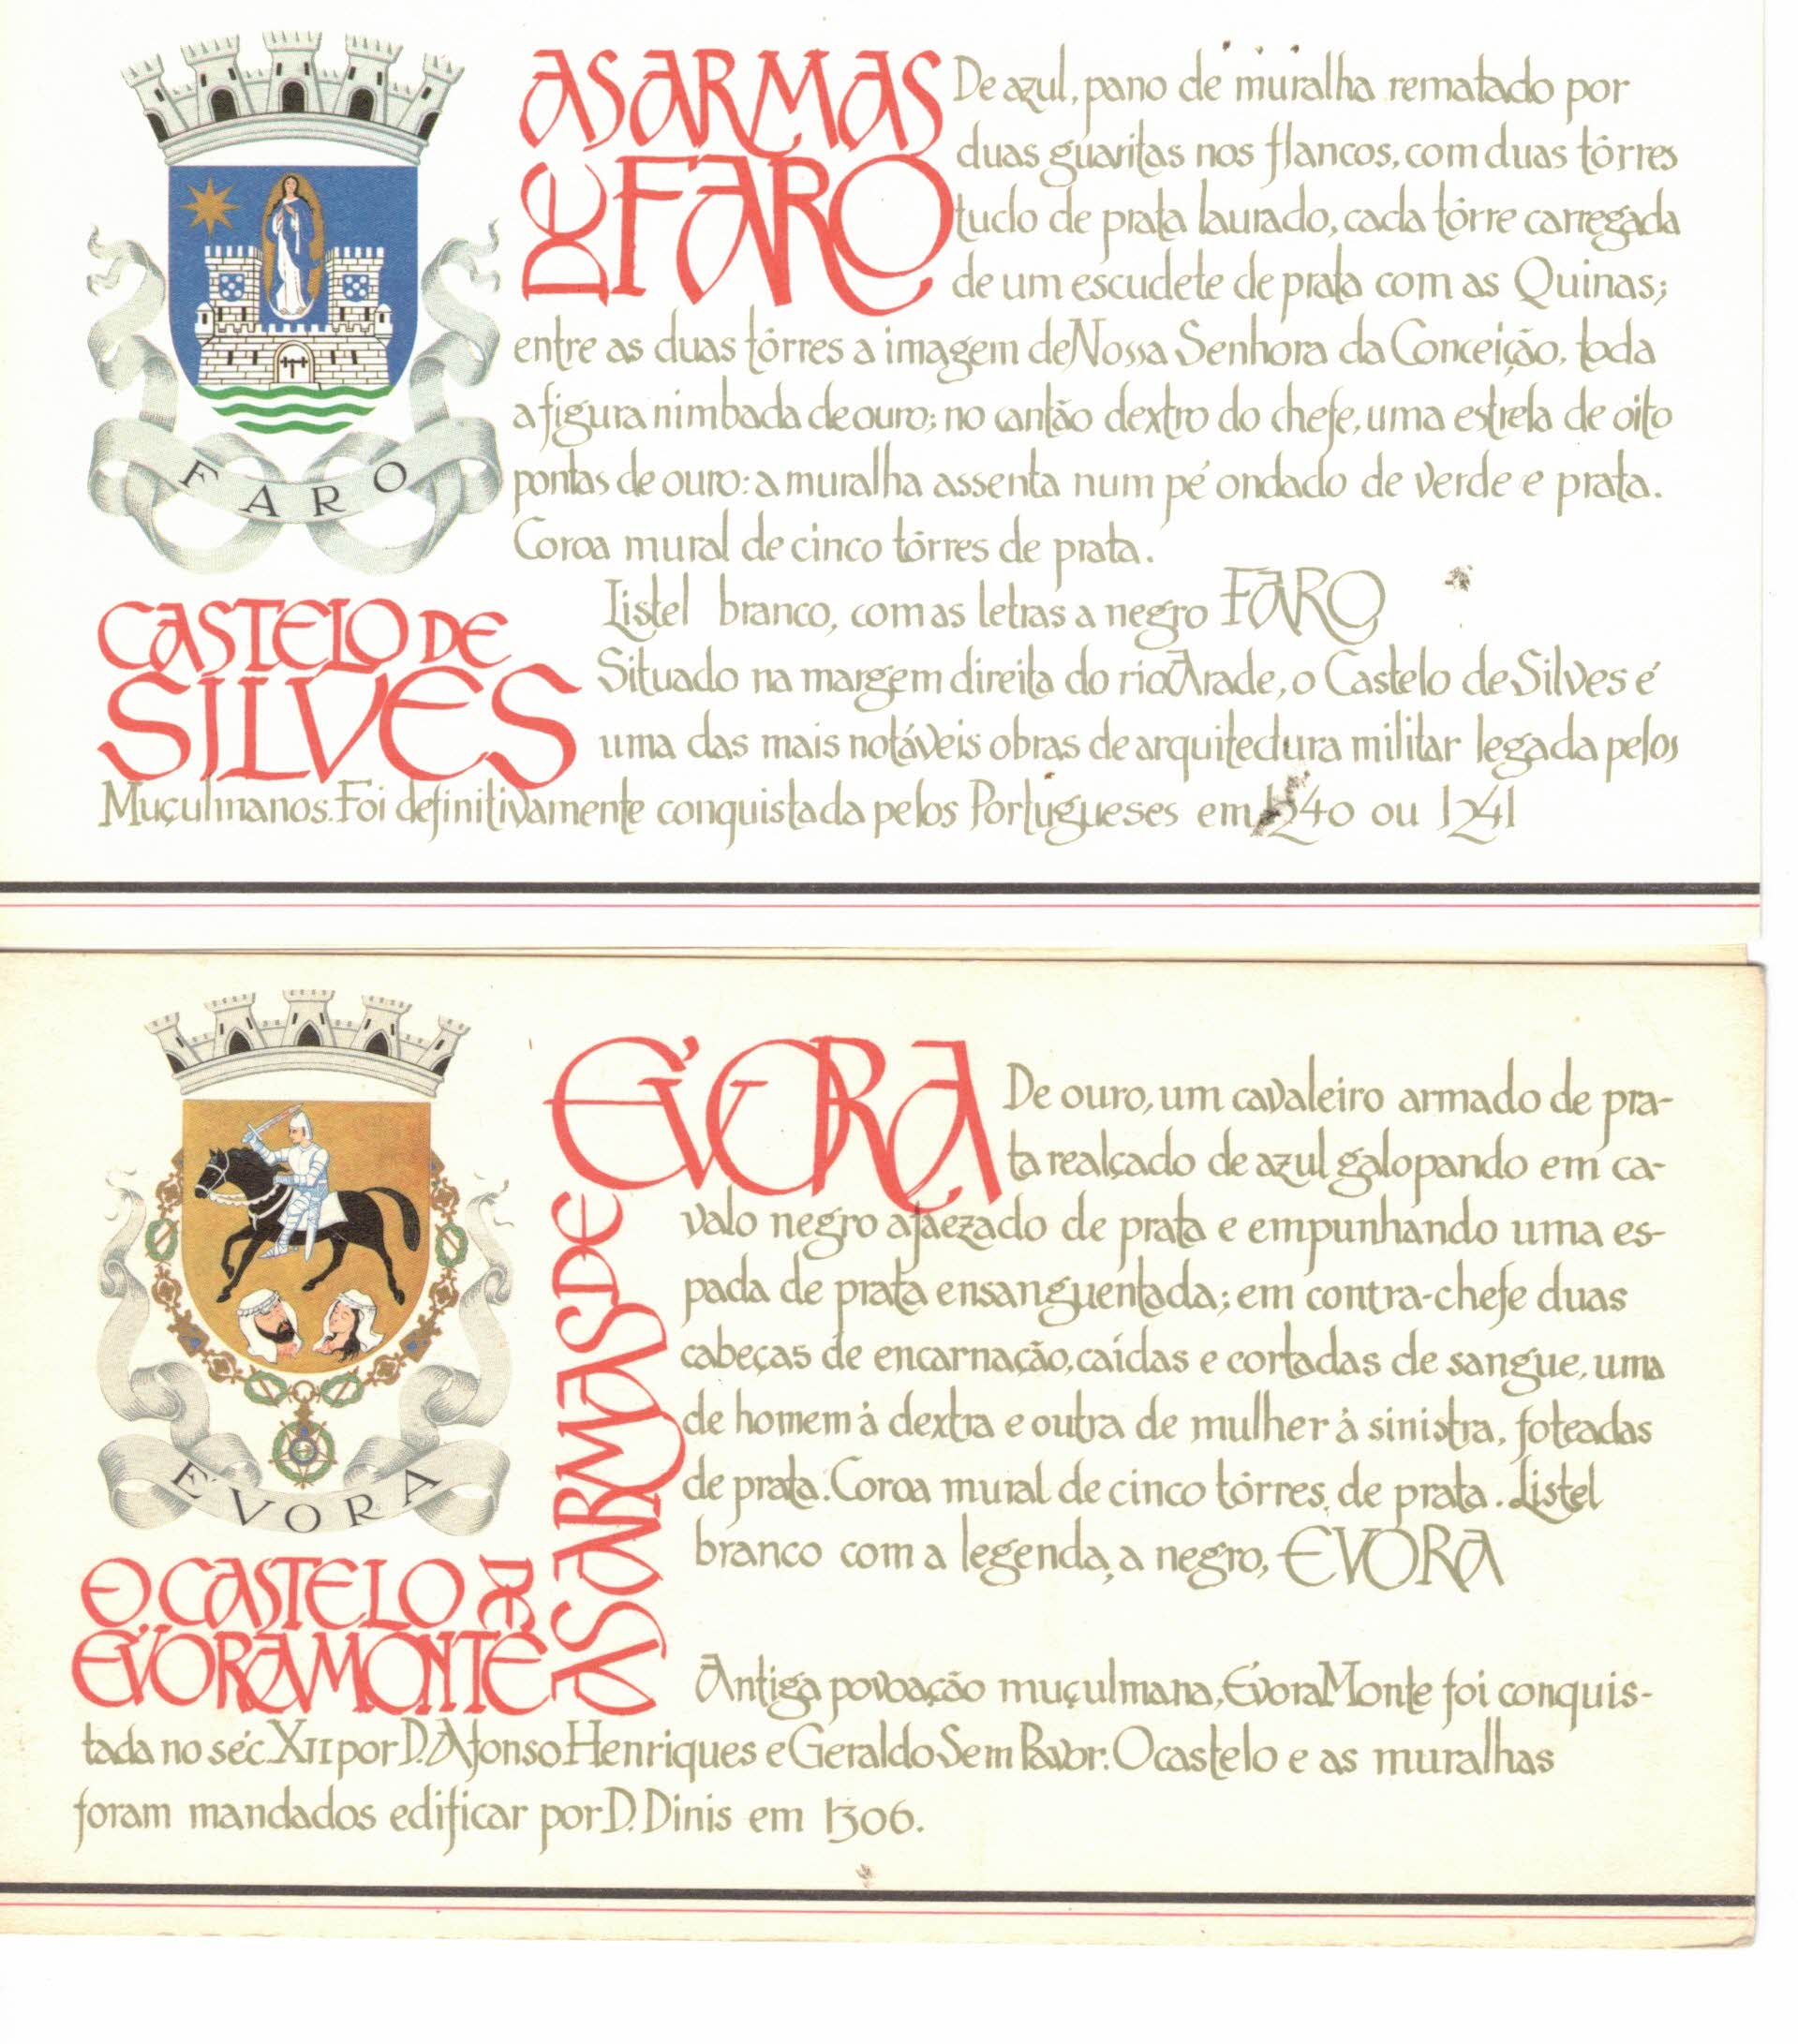 AS ARMAS
DE FARO
De azul, pano de muralha rematado por
duas guaritas nos flancos, com duas tôrres
tudo de prata laurado, cada tôrre carregada
de um escudete de prata com as Quinas;
entre as duas tôrres a imagem de Nossa Senhora da Conceição, toda
a figura nimbada de ouro; no cantão dextro do chefe, uma estrela de oito
pontas de ouro: a muralha assenta num pé ondado de verde e prata.
Coroa mural de cinco tôrres de prata.
Listel branco, com as letras a negro FARO
FARO
CASTELO DE
SILVES
Situado na margem direita do rio Arade, o Castelo de Silves é
uma das mais notáveis obras de arquitectura militar legada pelos
Muçulmanos. Foi definitivamente conquistada pelos Portugueses em 1240 ou 1241
AS ARMAS DE
ÉVORA
De ouro, um cavaleiro armado de pra-
ta realçado de azul galopando em ca-
valo negro ajaezado de prata e empunhando uma es-
pada de prata ensanguentada; em contra-chefe duas
cabeças de encarnação, caídas e cortadas de sangue, uma
de homem à dextra e outra de mulher à sinistra, foteadas
de prata. Coroa mural de cinco tôrres de prata. Listel
branco com a legenda, a negro, EVORA
ÉVORA
O CASTELO DE
ÉVORAMONTE
Antiga povoação muçulmana, Évora Monte foi conquis-
tada no séc. XII por D. Afonso Henriques e Geraldo Sem Pavor. O castelo e as muralhas
foram mandados edificar por D. Dinis em 1306.